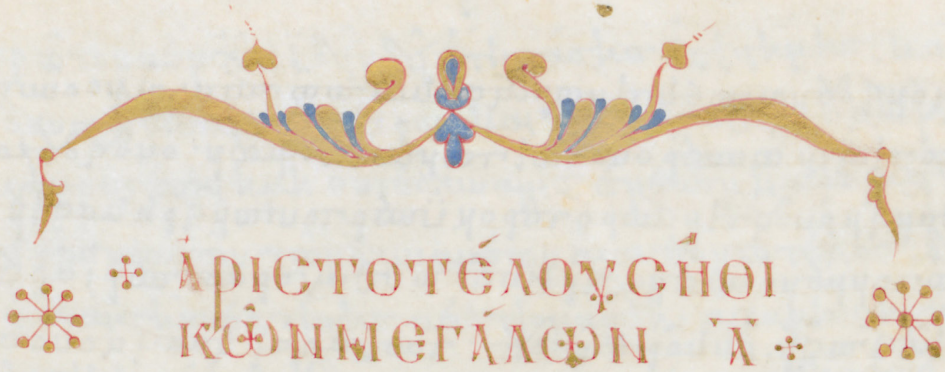 ἈΡΙΣΤΟΤΈΛΟΥΣ ἨΘΙ
ΚΩ͂Ν ΜΕΓΆΛΩΝ Α̅